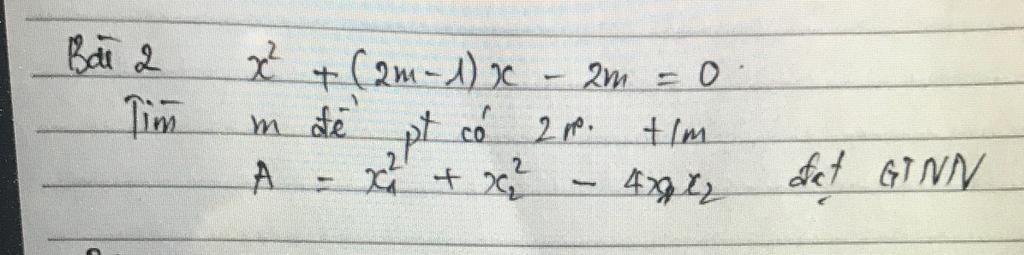 Bài 2 x² + (2m-1)x - 2m = 0
Tìm m để pt có 2 n⁰. t/m
A = x₁² + x₂² - 4x₁x₂ đạt GTNN